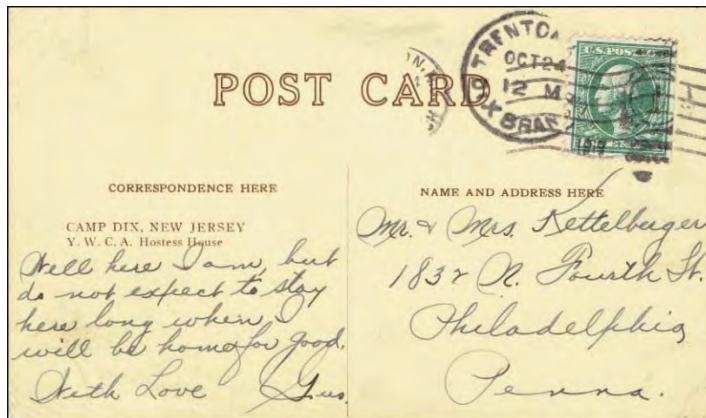 POST CARD
TRENTON
OCT 24
12 M
DIX BRANCH
1919
U.S. POSTAGE
CORRESPONDENCE HERE
CAMP DIX, NEW JERSEY
Y. W. C. A. Hostess House
Well here I am, but
do not expect to stay
here long when I
will be home for good.
With Love Gus.
NAME AND ADDRESS HERE
Mr. & Mrs. Kettelberger
1832 N. Fourth St.
Philadelphia
Penna.